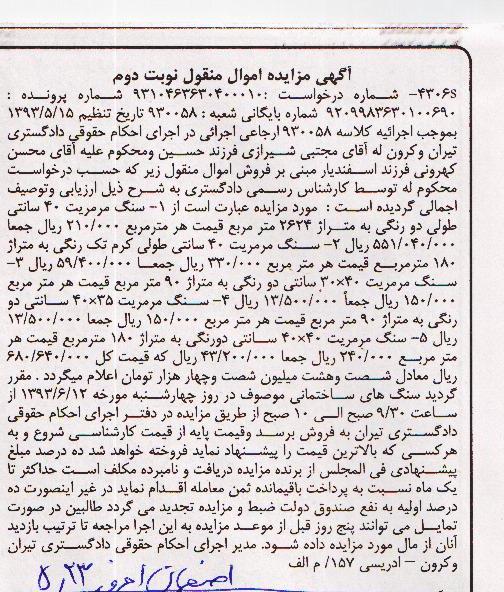 آگهی مزایده اموال منقول نوبت دوم
۴۳۰۶S- شماره درخواست :۹۳۱۰۴۶۳۶۳۰۴۰۰۰۱۰ شماره پرونده :
۹۲۰۹۹۸۳۶۳۰۱۰۰۶۹۰ شماره بایگانی شعبه : ۹۳۰۰۵۸ تاریخ تنظیم ۱۳۹۳/۵/۱۵
بموجب اجرائیه کلاسه ۹۳۰۰۵۸ ارجاعی اجرائی در اجرای احکام حقوقی دادگستری
تیران وکرون له آقای مجتبی شیرازی فرزند حسین ومحکوم علیه آقای محسن
کهرونی فرزند اسفندیار مبنی بر فروش اموال منقول زیر که حسب درخواست
محکوم له توسط کارشناس رسمی دادگستری به شرح ذیل ارزیابی وتوصیف
اجمالی گردیده است : مورد مزایده عبارت است از ۱- سنگ مرمریت ۴۰ سانتی
طولی دو رنگی به متراژ ۲۶۲۴ متر مربع قیمت هر مترمربع ۲۱۰/۰۰۰ ریال جمعا
۵۵۱/۰۴۰/۰۰۰ ریال ۲- سنگ مرمریت ۴۰ سانتی طولی کرم تک رنگی به متراژ
۱۸۰ مترمربع قیمت هر متر مربع ۳۳۰/۰۰۰ ریال جمعا ۵۹/۴۰۰/۰۰۰ ریال ۳-
سنگ مرمریت ۴۰×۳۰ سانتی دو رنگی به متراژ ۹۰ متر مربع قیمت هر متر مربع
۱۵۰/۰۰۰ ریال جمعاً ۱۳/۵۰۰/۰۰۰ ریال ۴- سنگ مرمریت ۳۵×۴۰ سانتی دو
رنگی به متراژ ۹۰ متر مربع قیمت هر متر مربع ۱۵۰/۰۰۰ ریال جمعا ۱۳/۵۰۰/۰۰۰
ریال ۵- سنگ مرمریت ۴۰×۴۰ سانتی دورنگی به متراژ ۱۸۰ مترمربع قیمت هر
متر مربع ۲۴۰/۰۰۰ ریال جمعا ۴۳/۲۰۰/۰۰۰ ریال که قیمت کل ۶۸۰/۶۴۰/۰۰۰
ریال معادل شصت وهشت میلیون شصت وچهار هزار تومان اعلام میگردد . مقرر
گردید سنگ های ساختمانی موصوف در روز چهارشنبه مورخه ۱۳۹۳/۶/۱۲ از
ساعت ۹/۳۰ صبح الی ۱۰ صبح از طریق مزایده در دفتر اجرای احکام حقوقی
دادگستری تیران به فروش برسد وقیمت پایه از قیمت کارشناسی شروع و به
هرکسی که بالاترین قیمت را پیشنهاد نماید فروخته خواهد شد ده درصد مبلغ
پیشنهادی فی المجلس از برنده مزایده دریافت و نامبرده مکلف است حداکثر تا
یک ماه نسبت به پرداخت باقیمانده ثمن معامله اقدام نماید در غیر اینصورت ده
درصد اولیه به نفع صندوق دولت ضبط و مزایده تجدید می گردد طالبین در صورت
تمایل می توانند پنج روز قبل از موعد مزایده به این اجرا مراجعه تا ترتیب بازدید
آنان از مال مورد مزایده داده شود. مدیر اجرای احکام حقوقی دادگستری تیران
وکرون – ادریسی ۱۵۷/ م الف
اصفهان امروز ۵٫۲۳